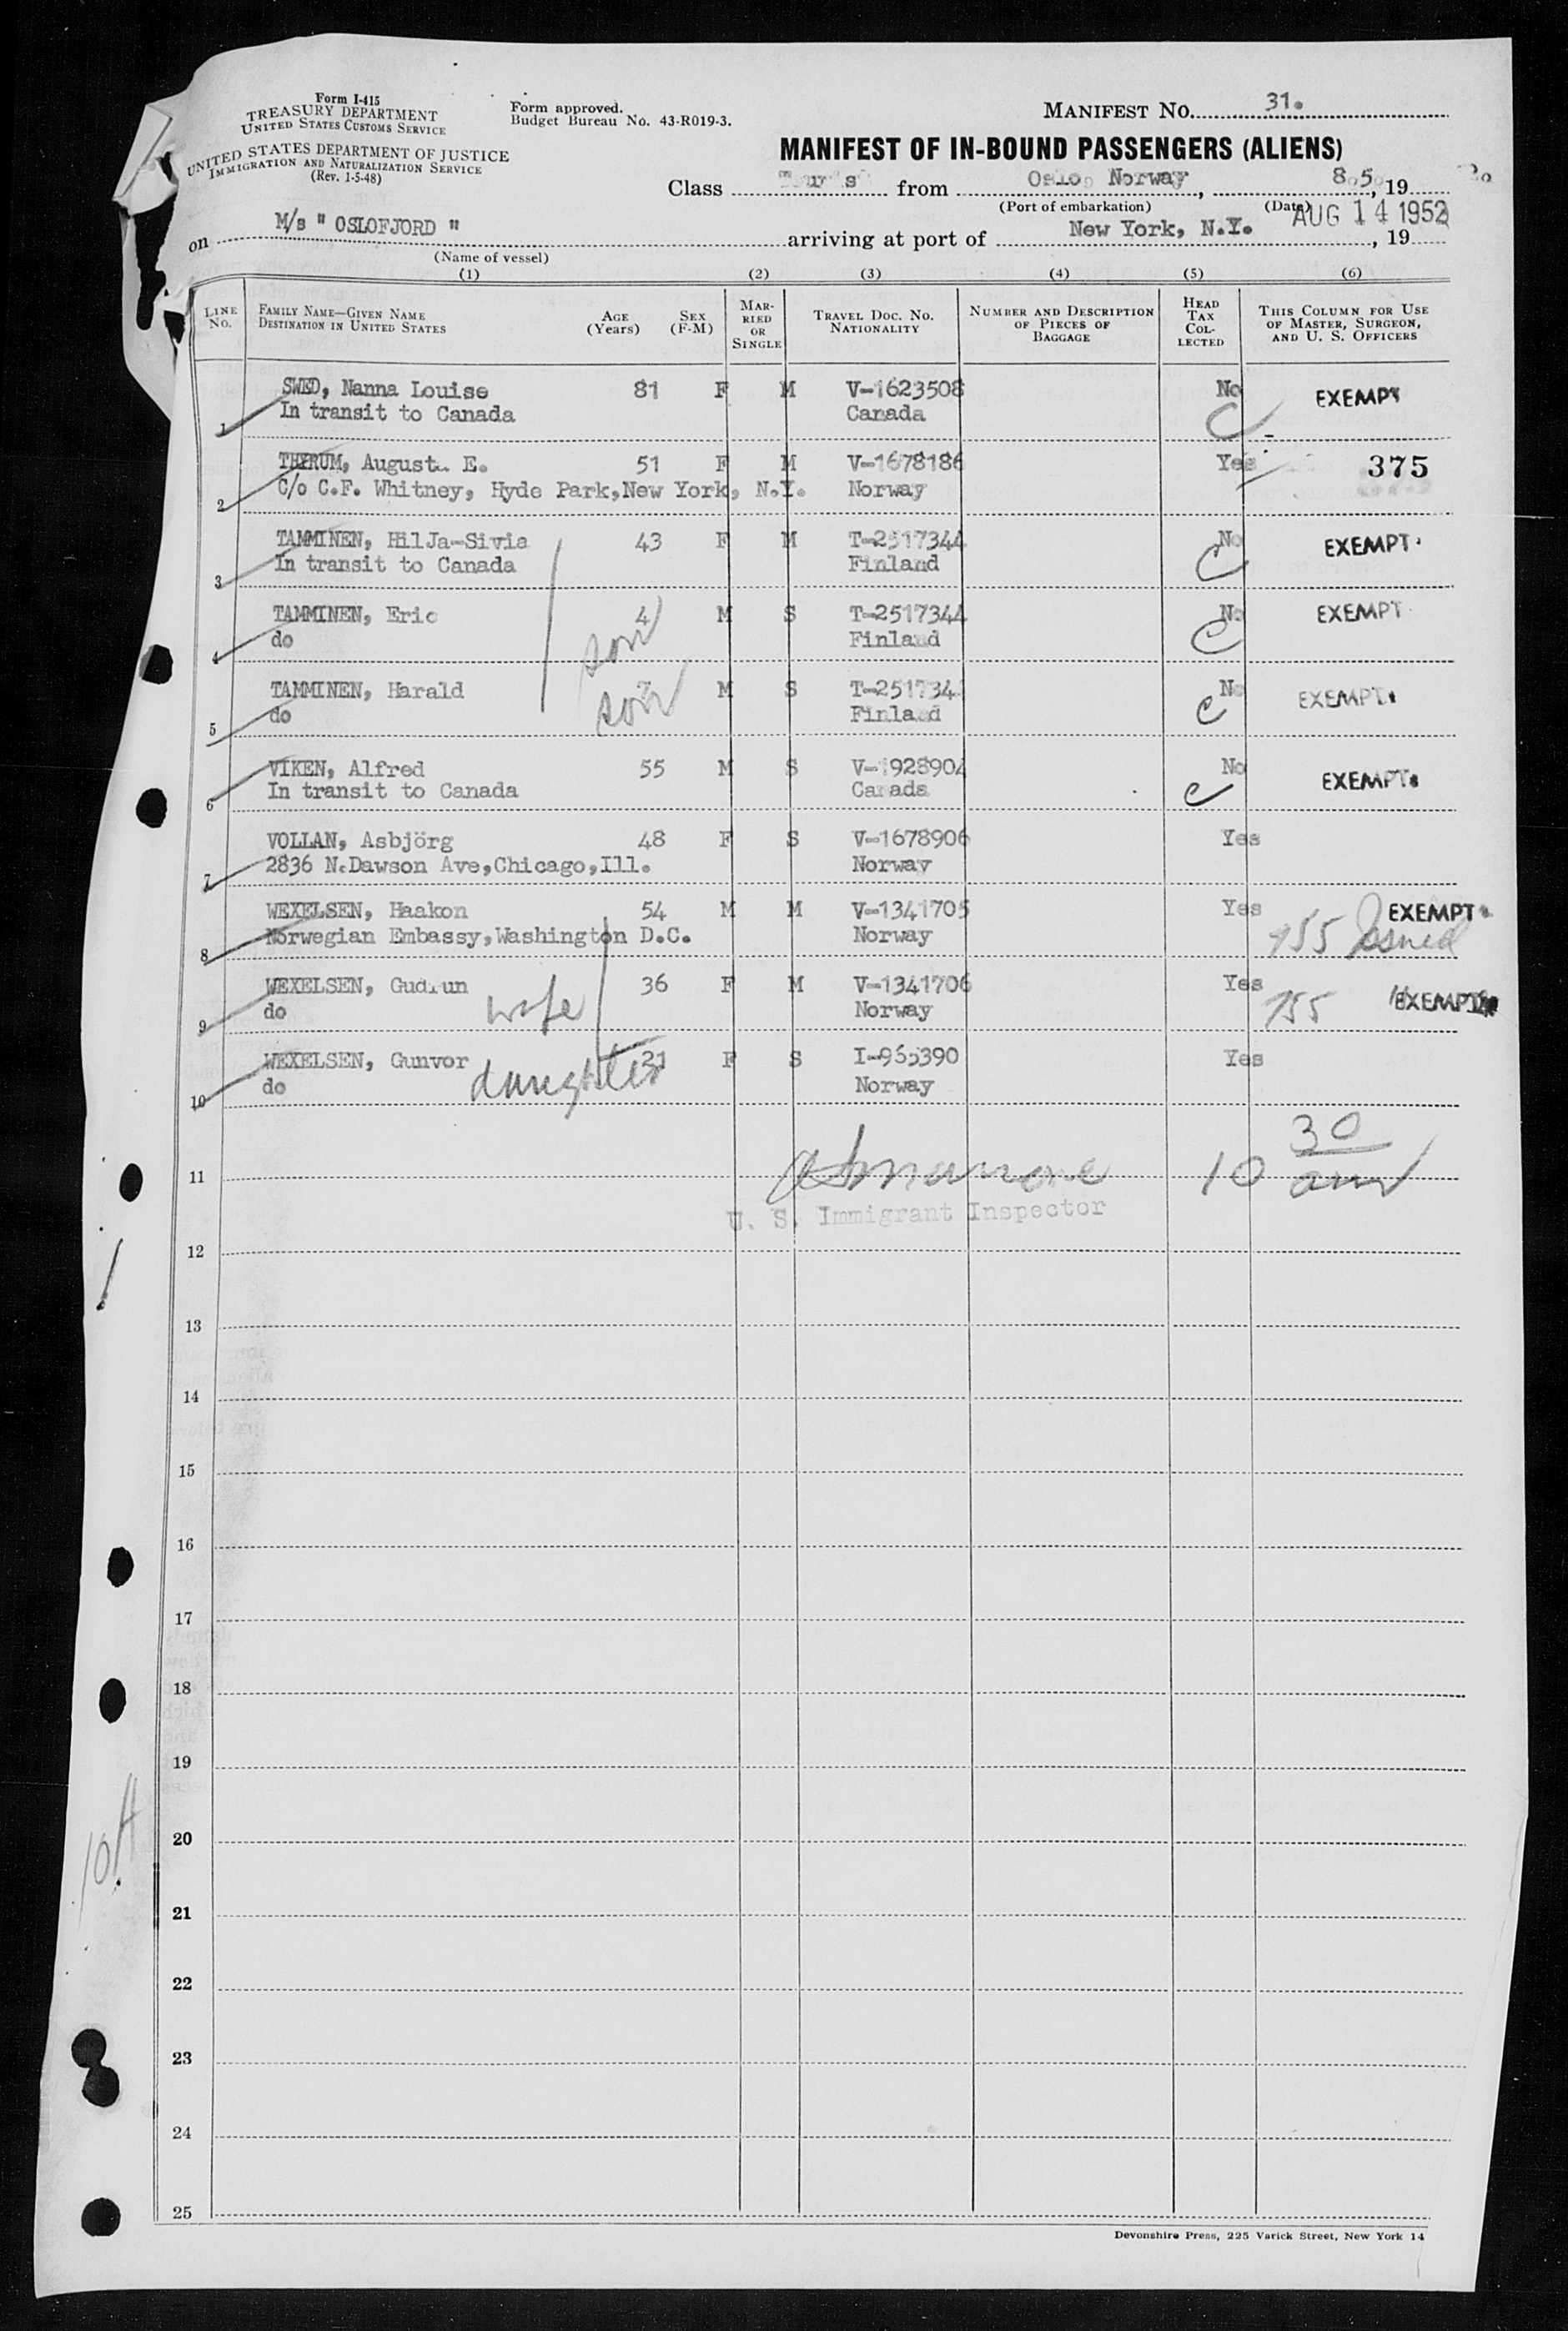 Form I-415
TREASURY DEPARTMENT
UNITED STATES CUSTOMS SERVICE
UNITED STATES DEPARTMENT OF JUSTICE
IMMIGRATION AND NATURALIZATION SERVICE
(Rev. 1-5-48)
Form approved.
Budget Bureau No. 43-R019-3.
MANIFEST NO. 31.
MANIFEST OF IN-BOUND PASSENGERS (ALIENS)
Class from Oslo, Norway, 8.5, 19
(Port of embarkation) (Date)
on M/s " OSLOFJORD " arriving at port of New York, N.Y. AUG 14 1952, 19
(Name of vessel)
(1) (2) (3) (4) (5) (6)
LINE NO. FAMILY NAME—GIVEN NAME DESTINATION IN UNITED STATES AGE (Years) SEX (F-M) MARRIED OR SINGLE TRAVEL DOC. NO. NATIONALITY NUMBER AND DESCRIPTION OF PIECES OF BAGGAGE HEAD TAX COLLECTED THIS COLUMN FOR USE OF MASTER, SURGEON, AND U. S. OFFICERS
1 SWED, Nanna Louise 81 F M V-1623508 No EXEMPT
In transit to Canada Canada C
2 THYRUM, August. E. 51 F M V-1678186 Yes 375
C/o C.F. Whitney, Hyde Park,New York, N.Y. Norway
3 TAMMINEN, HilJa-Sivia 43 F M T-2517344 No EXEMPT
In transit to Canada Finland C
4 TAMMINEN, Eric 4 M S T-2517344 No EXEMPT
do son Finland C
5 TAMMINEN, Harald M S T-251734 No EXEMPT
do son Finland C
6 VIKEN, Alfred 55 M S V-1928904 No EXEMPT
In transit to Canada Canada C
7 VOLLAN, Asbjörg 48 F S V-1678906 Yes
2836 N.Dawson Ave,Chicago,Ill. Norway
8 WEXELSEN, Haakon 54 M M V-1341705 Yes EXEMPT
Norwegian Embassy,Washington D.C. Norway 155 Issued
9 WEXELSEN, Gudrun 36 F M V-1341706 Yes EXEMPT
do wife Norway 155
10 WEXELSEN, Gunvor 21 F S I-965390 Yes
do daughter Norway
11 10 30 am
U. S. Immigrant Inspector
12
13
14
15
16
17
18
19
20
21
22
23
24
25
Devonshire Press, 225 Varick Street, New York 14